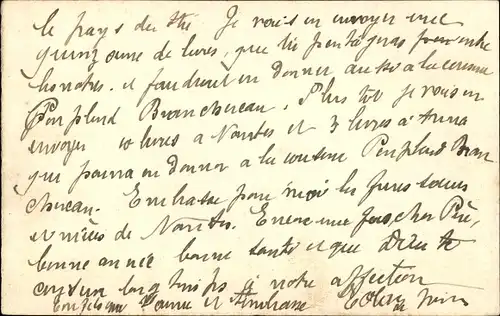 le pays du thé Je vais en envoyer une
quinzaine de livres, que tu partageras entre
les notres. il faudrait en donner aussi à la cousine
Peuplard Branchereau. Plus tôt je vais en
envoyer 10 livres à Nantes et 3 livres à
qui pourra en donner à la cousine Peuplard Bran
chereau. Embrasse pour moi les frères sœurs
et nièces de Nantes. Encore une fois, cher Père,
bonne année bonne santé et que Dieu te
conserve longtemps à notre affection
et t'embrasse